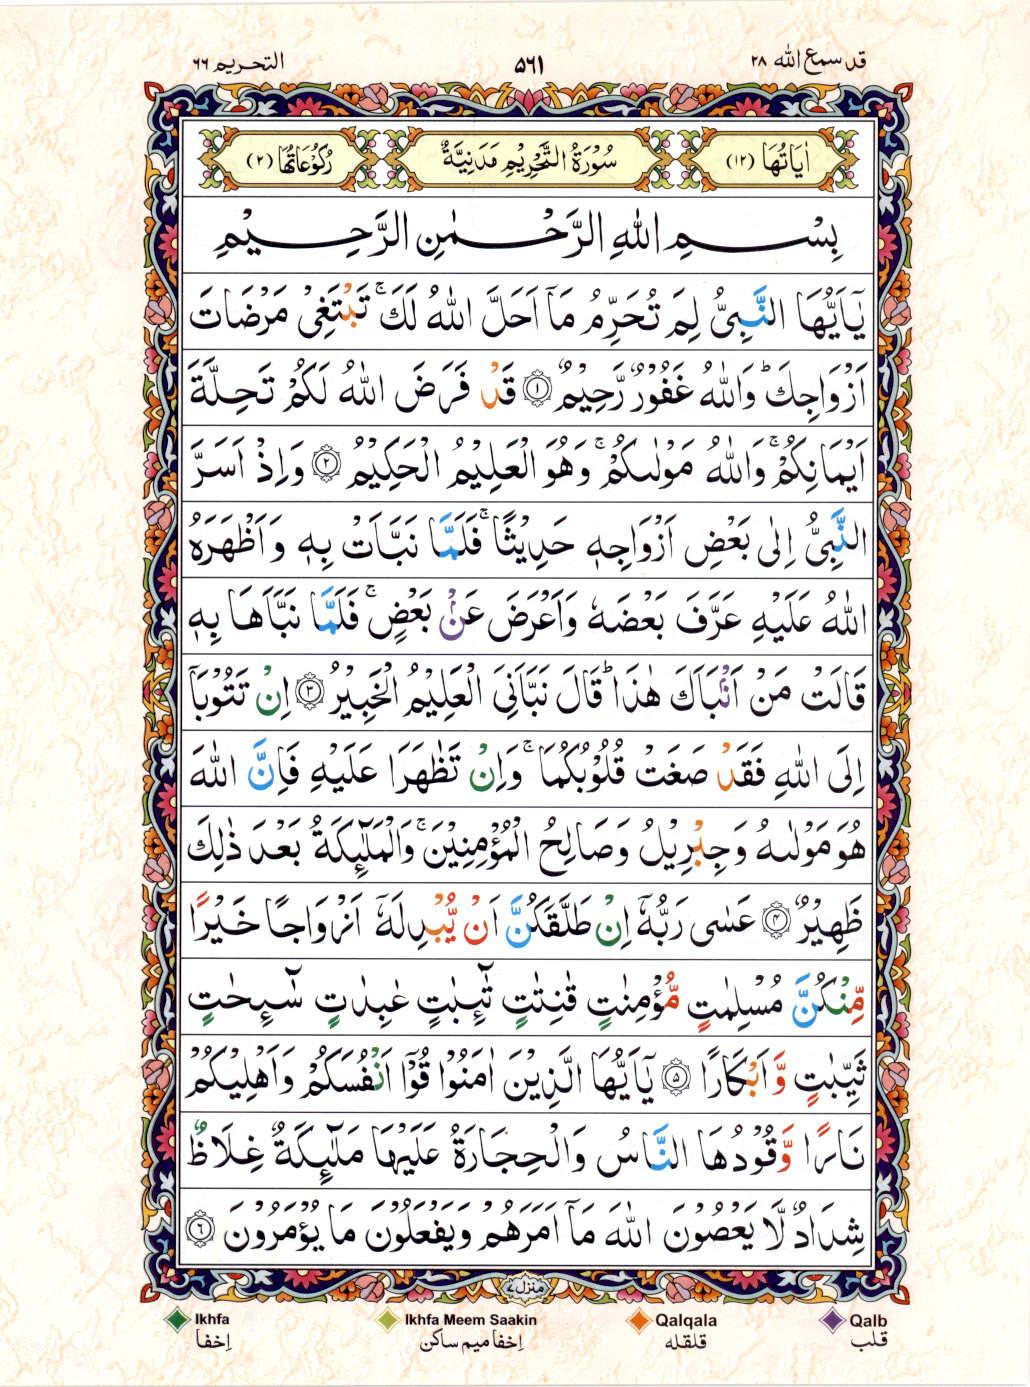 قد سمع الله ٢٨
٥٦١
التحريم ٦٦
اٰيَاتُهَا (١٢)
سُوْرَةُ التَّحْرِيْمِ مَدَنِيَّةٌ
رُكُوْعَاتُهَا (٢)
بِسْمِ اللّٰهِ الرَّحْمٰنِ الرَّحِيْمِ
يٰۤاَيُّهَا النَّبِىُّ لِمَ تُحَرِّمُ مَاۤ اَحَلَّ اللّٰهُ لَكَ ۚ تَبْتَغِىْ مَرْضَاتَ
اَزْوَاجِكَ ؕ وَاللّٰهُ غَفُوْرٌ رَّحِيْمٌ ۝١ قَدْ فَرَضَ اللّٰهُ لَكُمْ تَحِلَّةَ
اَيْمَانِكُمْ ۚ وَاللّٰهُ مَوْلٰٮكُمْ ۚ وَهُوَ الْعَلِيْمُ الْحَكِيْمُ ۝٢ وَاِذْ اَسَرَّ
النَّبِىُّ اِلٰى بَعْضِ اَزْوَاجِهٖ حَدِيْثًا ۚ فَلَمَّا نَبَّاَتْ بِهٖ وَاَظْهَرَهُ
اللّٰهُ عَلَيْهِ عَرَّفَ بَعْضَهٗ وَاَعْرَضَ عَنْۢ بَعْضٍ ۚ فَلَمَّا نَبَّاَهَا بِهٖ
قَالَتْ مَنْ اَنْۢبَاَكَ هٰذَا ؕ قَالَ نَبَّاَنِىَ الْعَلِيْمُ الْخَبِيْرُ ۝٣ اِنْ تَتُوْبَاۤ
اِلَى اللّٰهِ فَقَدْ صَغَتْ قُلُوْبُكُمَا ۚ وَاِنْ تَظٰهَرَا عَلَيْهِ فَاِنَّ اللّٰهَ
هُوَ مَوْلٰٮهُ وَجِبْرِيْلُ وَصَالِحُ الْمُؤْمِنِيْنَ ۚ وَالْمَلٰٓئِكَةُ بَعْدَ ذٰلِكَ
ظَهِيْرٌ ۝٤ عَسٰى رَبُّهٗۤ اِنْ طَلَّقَكُنَّ اَنْ يُّبْدِلَهٗۤ اَزْوَاجًا خَيْرًا
مِّنْكُنَّ مُسْلِمٰتٍ مُّؤْمِنٰتٍ قٰنِتٰتٍ تٰٓئِبٰتٍ عٰبِدٰتٍ سٰٓئِحٰتٍ
ثَيِّبٰتٍ وَّاَبْكَارًا ۝٥ يٰۤاَيُّهَا الَّذِيْنَ اٰمَنُوْا قُوْۤا اَنْفُسَكُمْ وَاَهْلِيْكُمْ
نَارًا وَّقُوْدُهَا النَّاسُ وَالْحِجَارَةُ عَلَيْهَا مَلٰٓئِكَةٌ غِلَاظٌ
شِدَادٌ لَّا يَعْصُوْنَ اللّٰهَ مَاۤ اَمَرَهُمْ وَيَفْعَلُوْنَ مَا يُؤْمَرُوْنَ ۝٦
منزل ٧
Ikhfa
اِخفا
Ikhfa Meem Saakin
اِخفا ميم ساكن
Qalqala
قلقله
Qalb
قلب